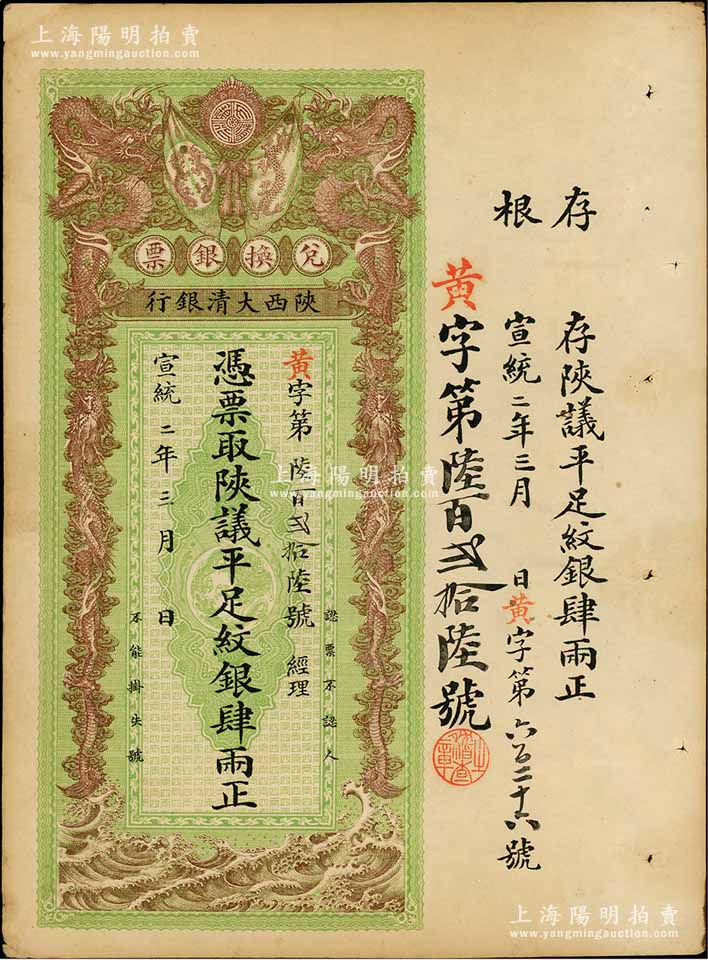 上海陽明拍賣
www.yangmingauction.com
上海陽明拍賣
www.yangmingauction.com
票銀換兌
行銀清大西陝
黃字第陸百弍拾陸號 經理
憑票取陝議平足紋銀肆兩正
宣統二年三月 日
認票不認人
不能掛失號
存根
存陝議平足紋銀肆兩正
宣統二年三月 日黃字第六百二十六號
黃字第陸百弍拾陸號
上海陽明拍賣
www.yangmingauction.com
上海陽明拍賣
www.yangmingauction.com